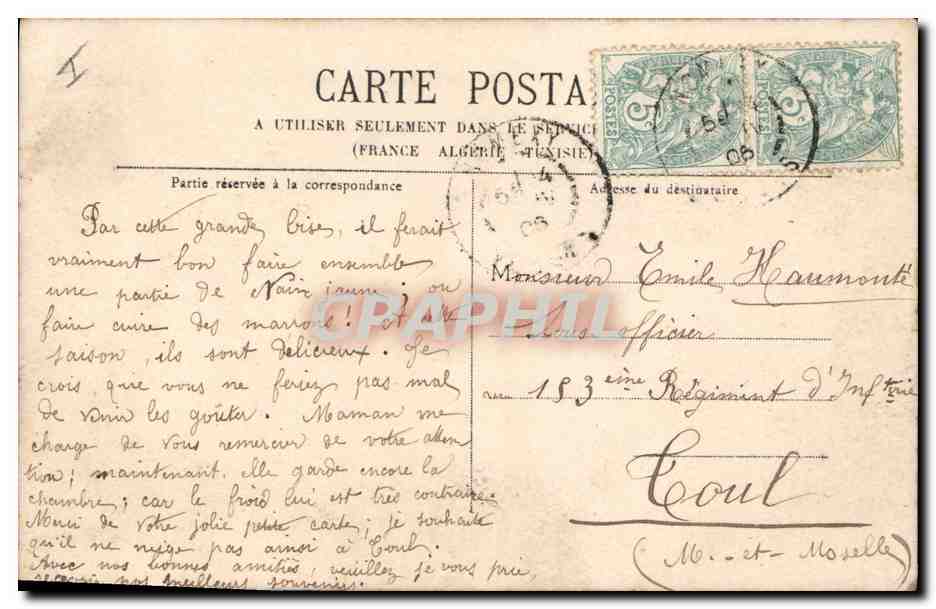 CARTE POSTA
A UTILISER SEULEMENT DANS LE SERVICE
(FRANCE ALGÉRIE TUNISIE)
POSTES
5
POSTES
5
Partie réservée à la correspondance
Adresse du destinataire
Par cette grande bise, il ferait
vraiment bon faire ensemble
une partie de Nain jaune; ou
faire cuire des marrons! et
saison, ils sont délicieux. Je
crois que vous ne feriez pas mal
de venir les goûter. Maman me
charge de vous remercier de votre atten
tion; maintenant elle garde encore la
chambre; car le froid lui est très contraire.
Merci de votre jolie petite carte; je souhaite
qu'il ne neige pas ainsi à Toul.
Avec nos bonnes amitiés, veuillez je vous prie,
recevoir nos meilleurs souvenirs.
Monsieur Emile Haumonté
Sous-officier
153 eine Régiment d'Inftrie
Toul
(M.-et-Moselle)
CPAPHIL
06
06